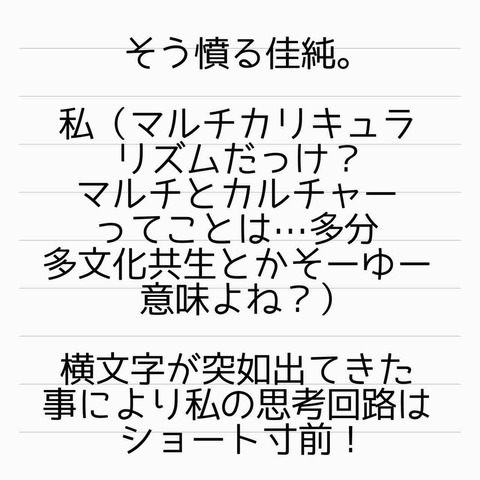 そう憤る佳純。
私（マルチカリキュラ
リズムだっけ？
マルチとカルチャー
ってことは…多分
多文化共生とかそーゆー
意味よね？）
横文字が突如出てきた
事により私の思考回路は
ショート寸前！